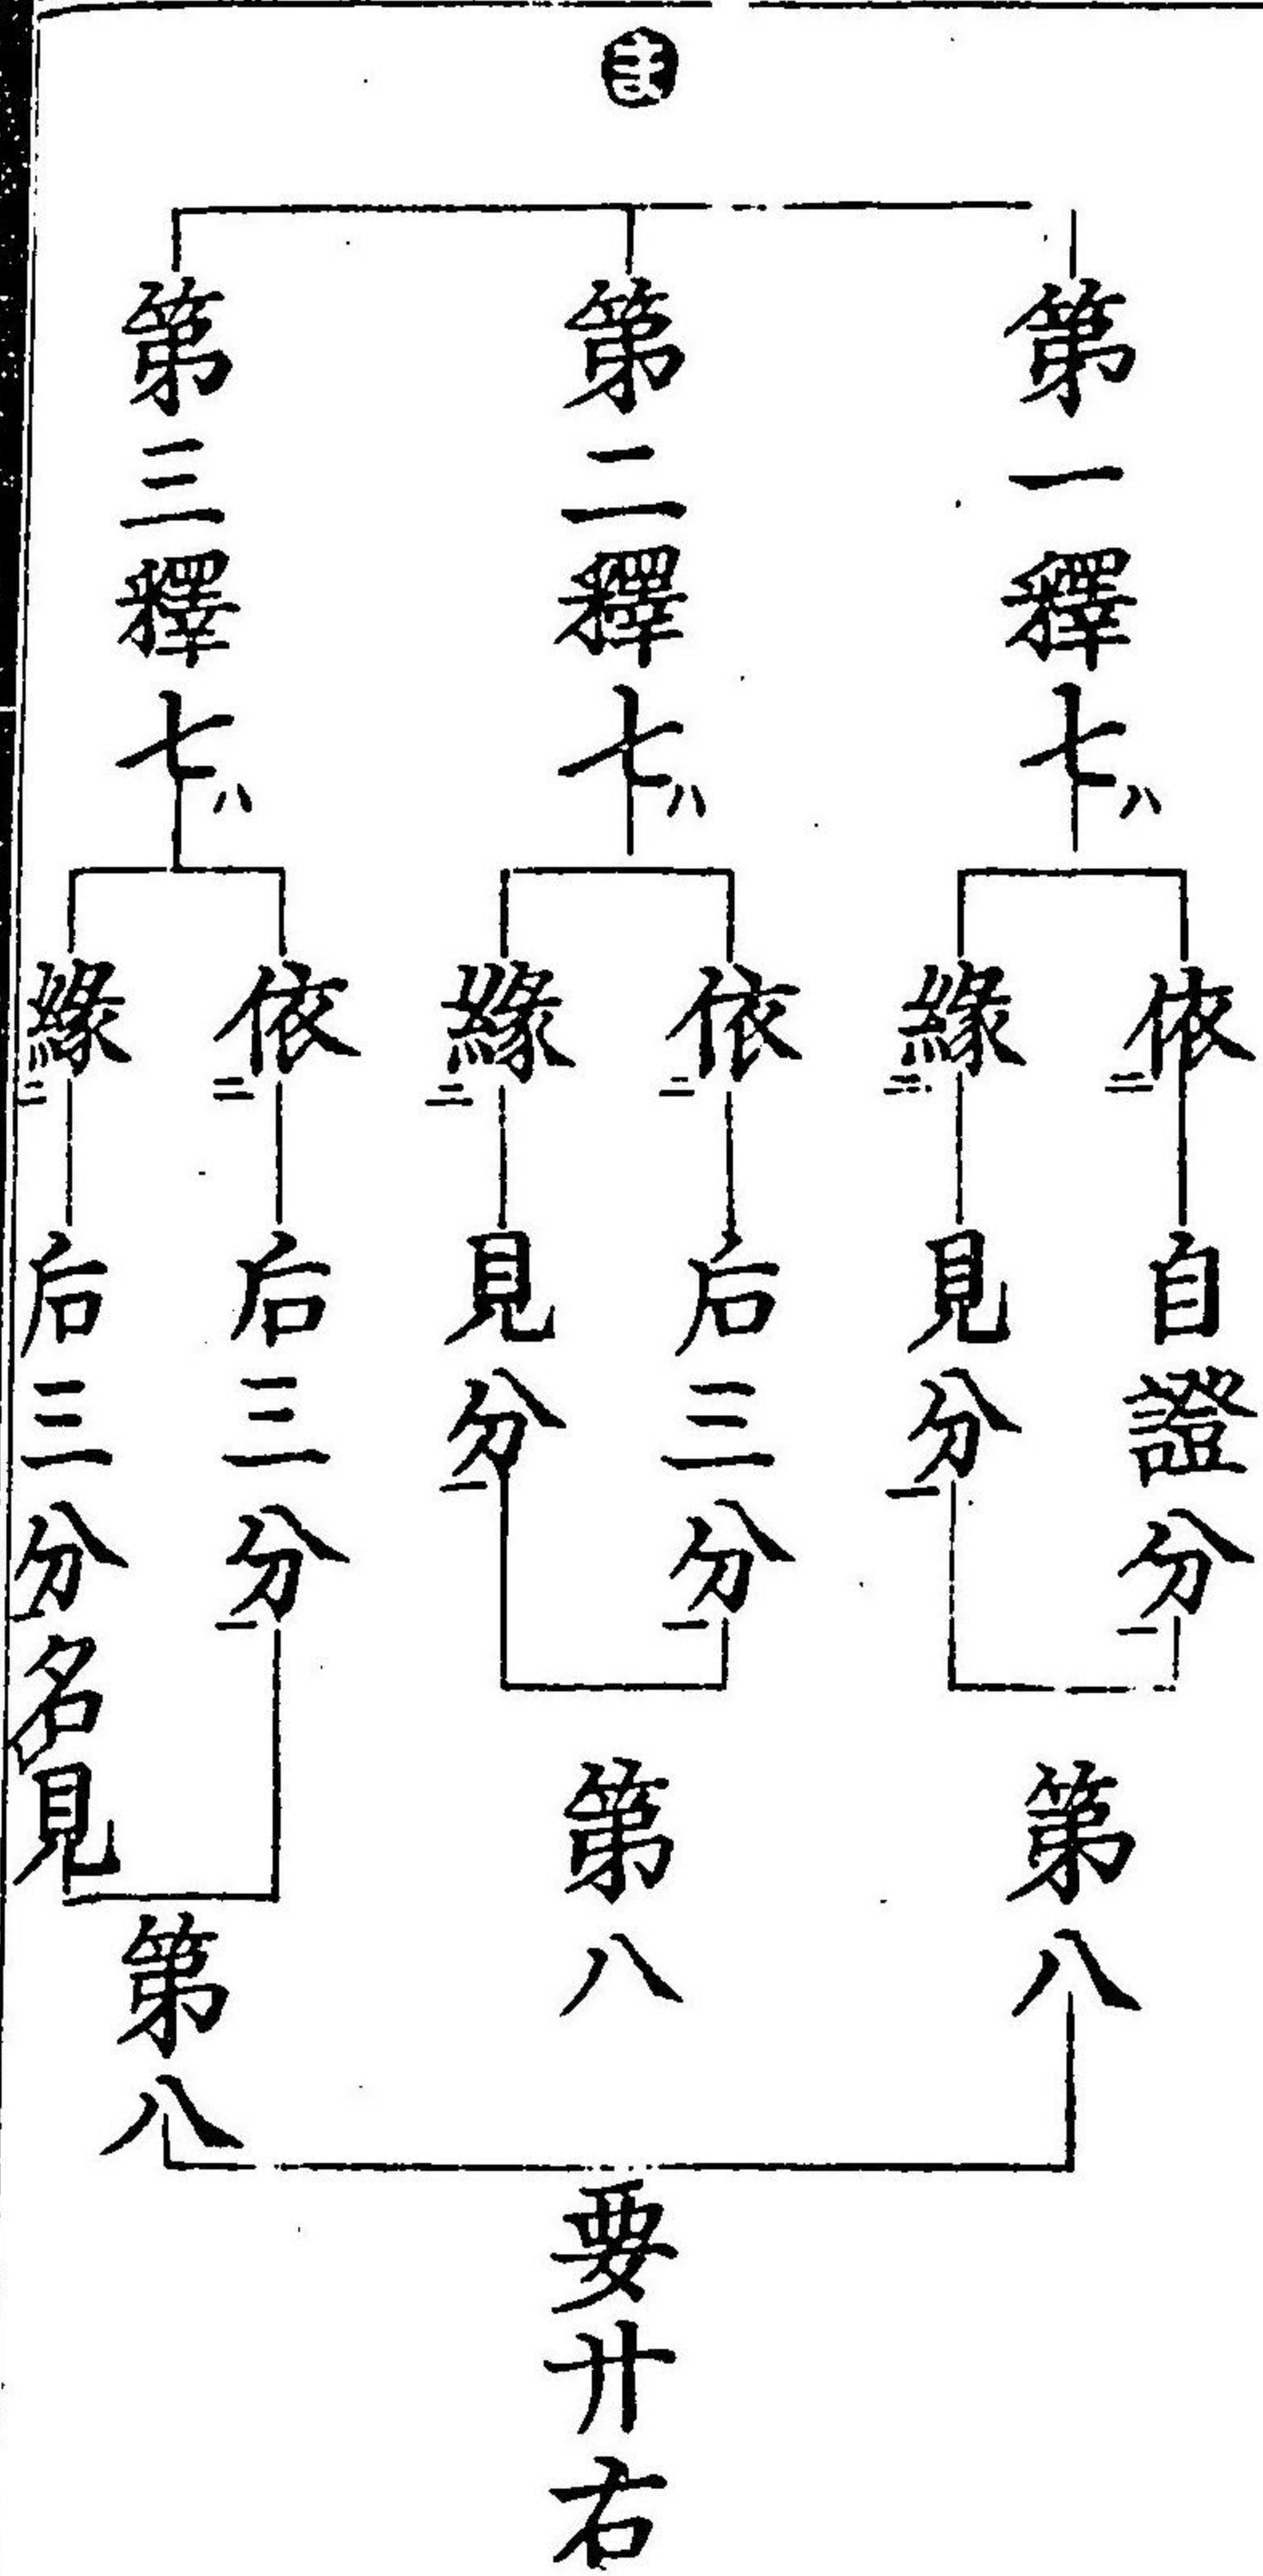 ま
第一釋七ハ
依二
自證分一
緣二
見分一
第八
第二釋七ハ
依二
后三分一
緣二
見分一
第八
第三釋七ハ
依二
后三分一
緣二
后三分一名見
第八
要廾右